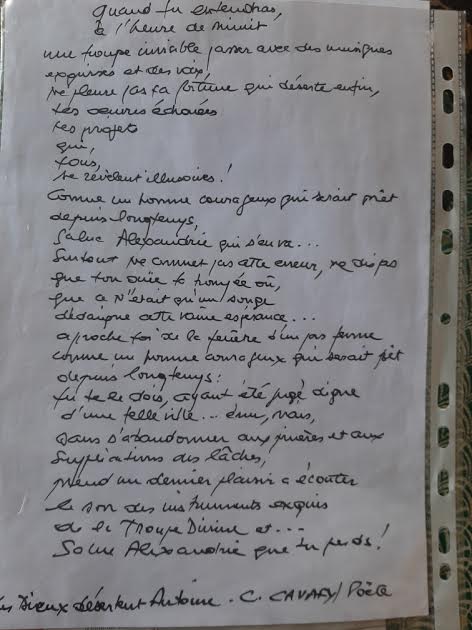 quand tu entendras,
à l'heure de minuit
une troupe invisible passer avec des musiques
exquises et des voix,
ne pleure pas ta fortune qui déserte enfin,
tes œuvres échouées
tes projets
qui,
tous,
se révèlent illusoires !
Comme un homme courageux qui serait prêt
depuis longtemps,
Salue Alexandrie qui s'en va...
Surtout ne commet pas cette erreur, ne dis pas
que ton ouïe t'a trompée où,
que ce n'était qu'un songe
dédaigne cette vaine espérance...
approche toi de la fenêtre d'un pas ferme
comme un homme courageux qui serait prêt
depuis longtemps :
tu te le dois, ayant été jugé digne
d'une telle ville... ému, mais,
sans s'abandonner aux prières et aux
supplications des lâches,
prend un dernier plaisir a écouter
le son des instruments exquis
de la Troupe Divine et...
Salue Alexandrie que tu perds !
Dieux désertent Antoine - C. CAVAFY / Poète